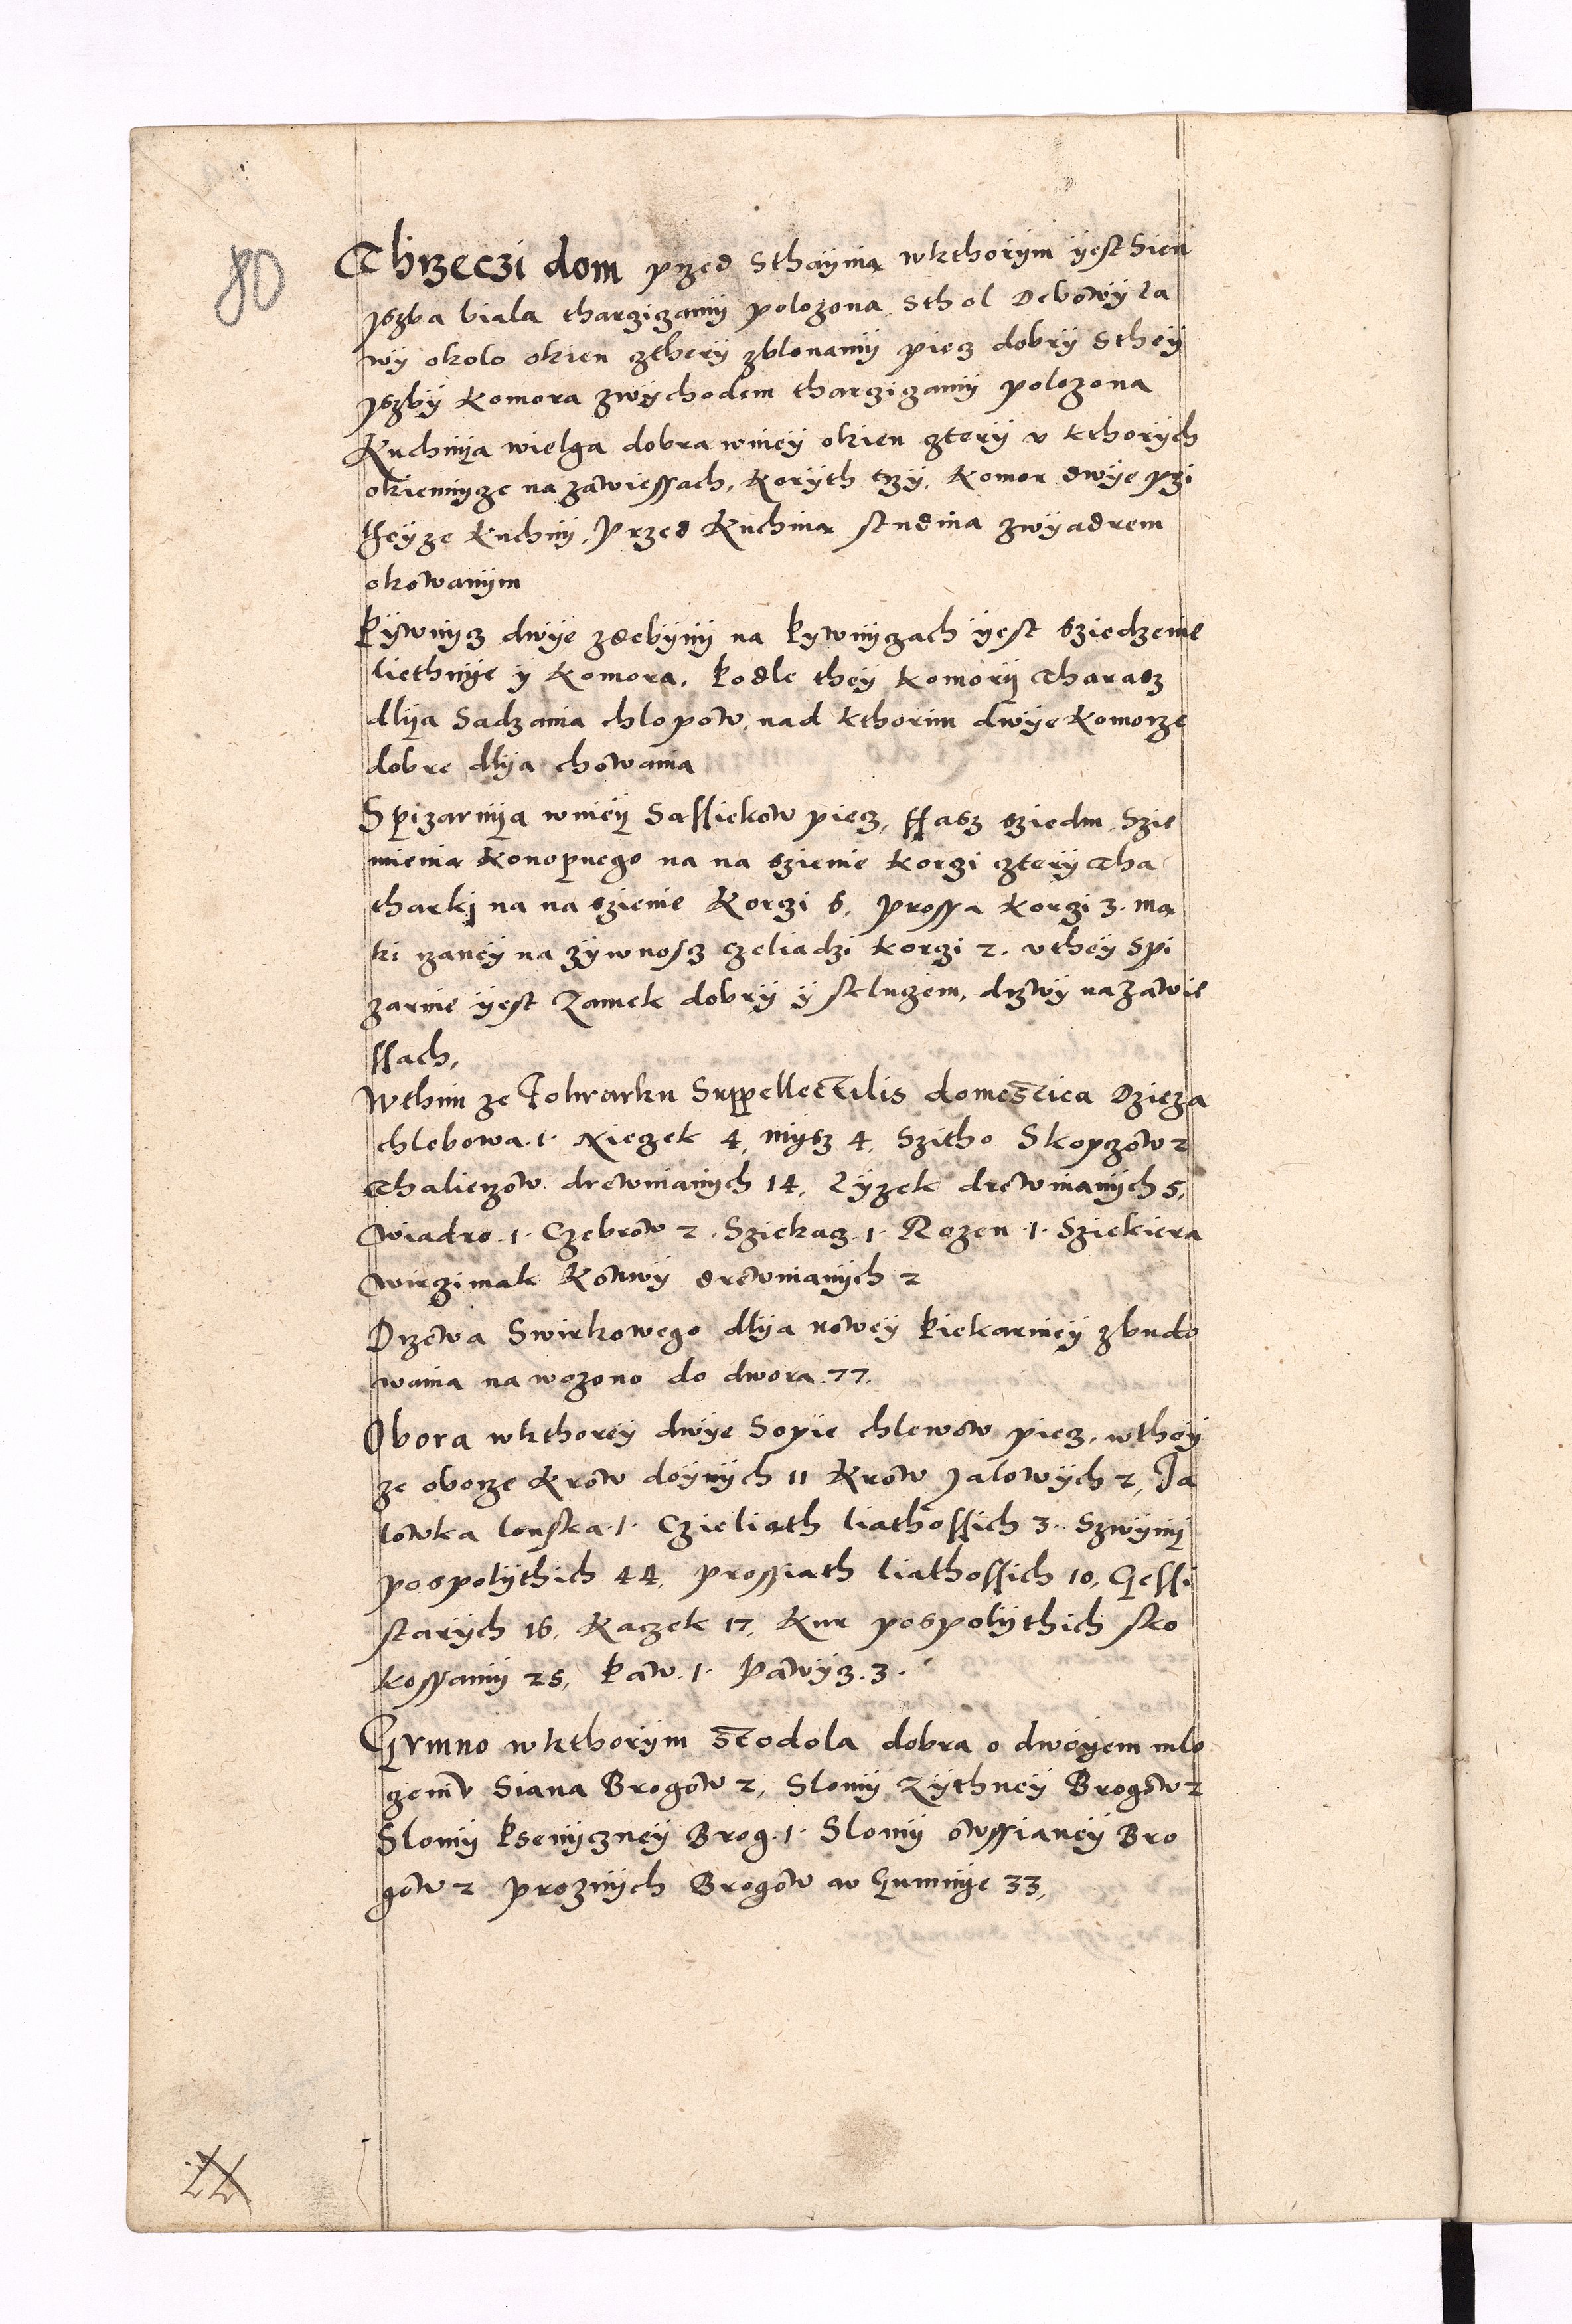 80
Thrzeczi dom przed Sthaynią wkthorym yest Sien
Jszba biala tharzizamy polozona, Sthol Debowy la
wy okolo okien czthery zblonamy piecz dobry Sthey
Jszby Komora zwychodem tharzizamy polozona
Kuchnya wielga dobra wniey okien cztery v kthorych
okiennycze na zawiessach, Koryth trzy, Komor dwye przi
theyze Kuchny, Przed Kuchnią studnia zwyadrem
okowanym
Pywnycz dwye zdebyny na Pywnyczach yest sziedzenie
liethnye y Komora, Podle they Komory Tharasz
dlya Sadzania chlopow, nad kthorim dwye Komorze
dobre dlya chowania
Spizarnya wniey Sassiekow piecz, ffasz sziedm, Szie
mienia Konopnego na na szienie Korzi cztery Tha
tharki na na szienie Korzi 6, Prossa Korzi 3. mą
ki rzaney na zywnosz czeliadzi Korzi 2. vthey Spi
zarnie yest Zamek dobry y skluczem, drzwy na zawie
ssach,
Wthim ze Folwarku Suppellectilis domestica Dzieza
chlebowa .1. Nieczek 4, mysz 4, Szitho Skopczow 2
Thalierzow drewnianych 14, Lyzek drewnianych 5,
Wiadro .1. Czebrow 2. Sziekacz .1. Rozen .1. Sziekiera
Wirzimak Kotwy drewnianych 2
Drzewa Swirkowego dlya nowey Piekarniey zbudo
wania na wozono do dwora .77.
Obora wkthorey dwye Sopie chlewow piecz, wthey
ze oborze Krow doynych 11 Krow Jalowych 2, Ja
lowka lonska .1. Czieliath liathossich 3. Szwyny
pospolythich 44, prossiath liathossich 10, Gessi
starych 16, Kaczek 17, Kur pospolythich sko
kossamy 25, Paw .1. Pawycz .3.
Gvmno wkthorym Stodola dobra o dwoyem mlo
czeniv Siana Brogow 2, Slomy Zythney Brogow 2
Slomy Psenyczney Brog .1. Slomy owssianey Bro
gow 2 proznych Brogow w Gumnye 33,